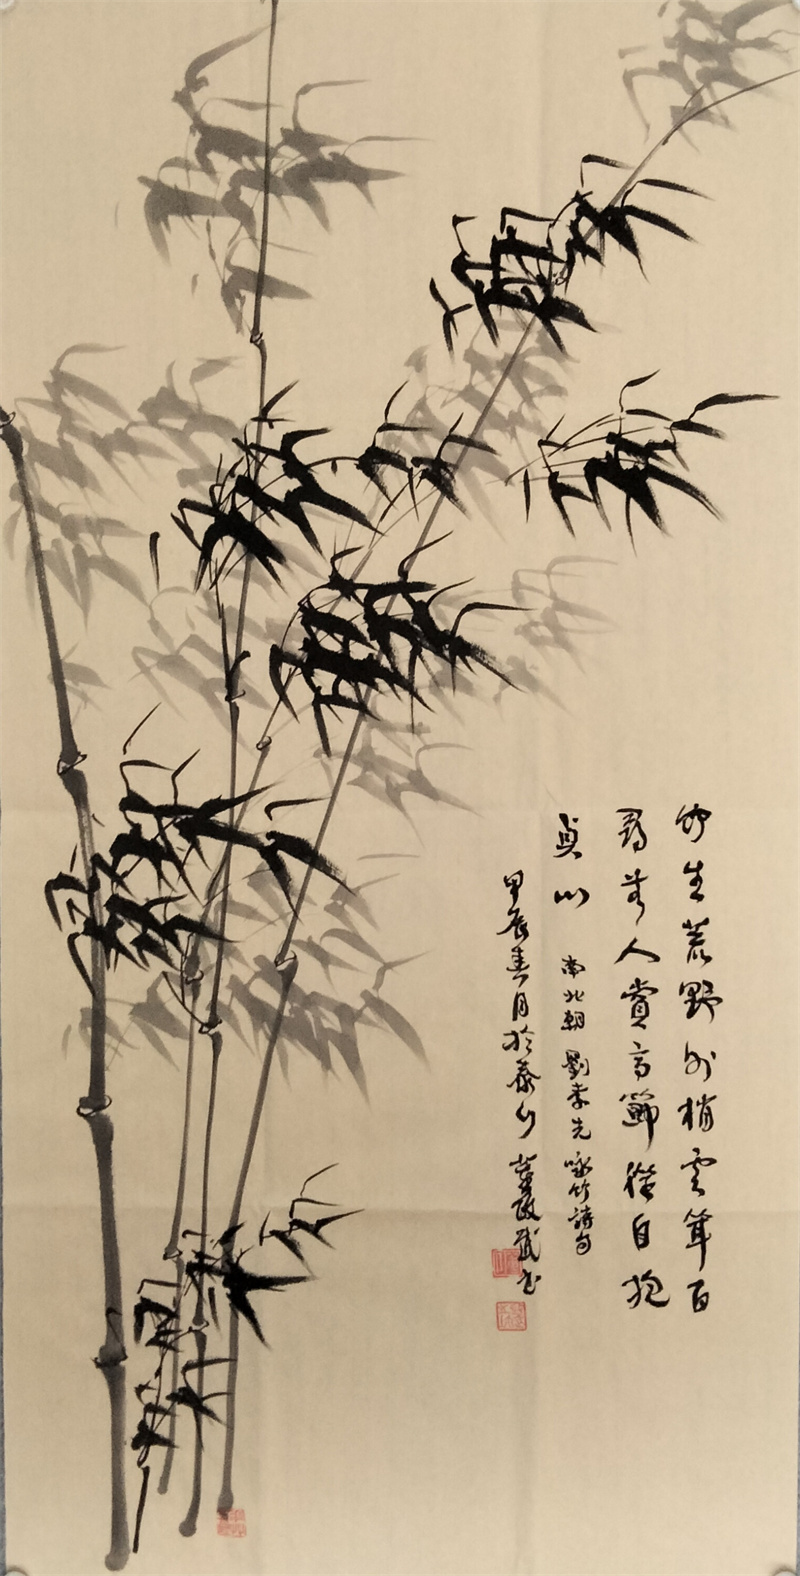 竹生荒野外梢雲聳百
尋無人賞高節徒自抱
貞心 南北朝劉孝先咏竹詩句
甲辰春月於泰 政武书